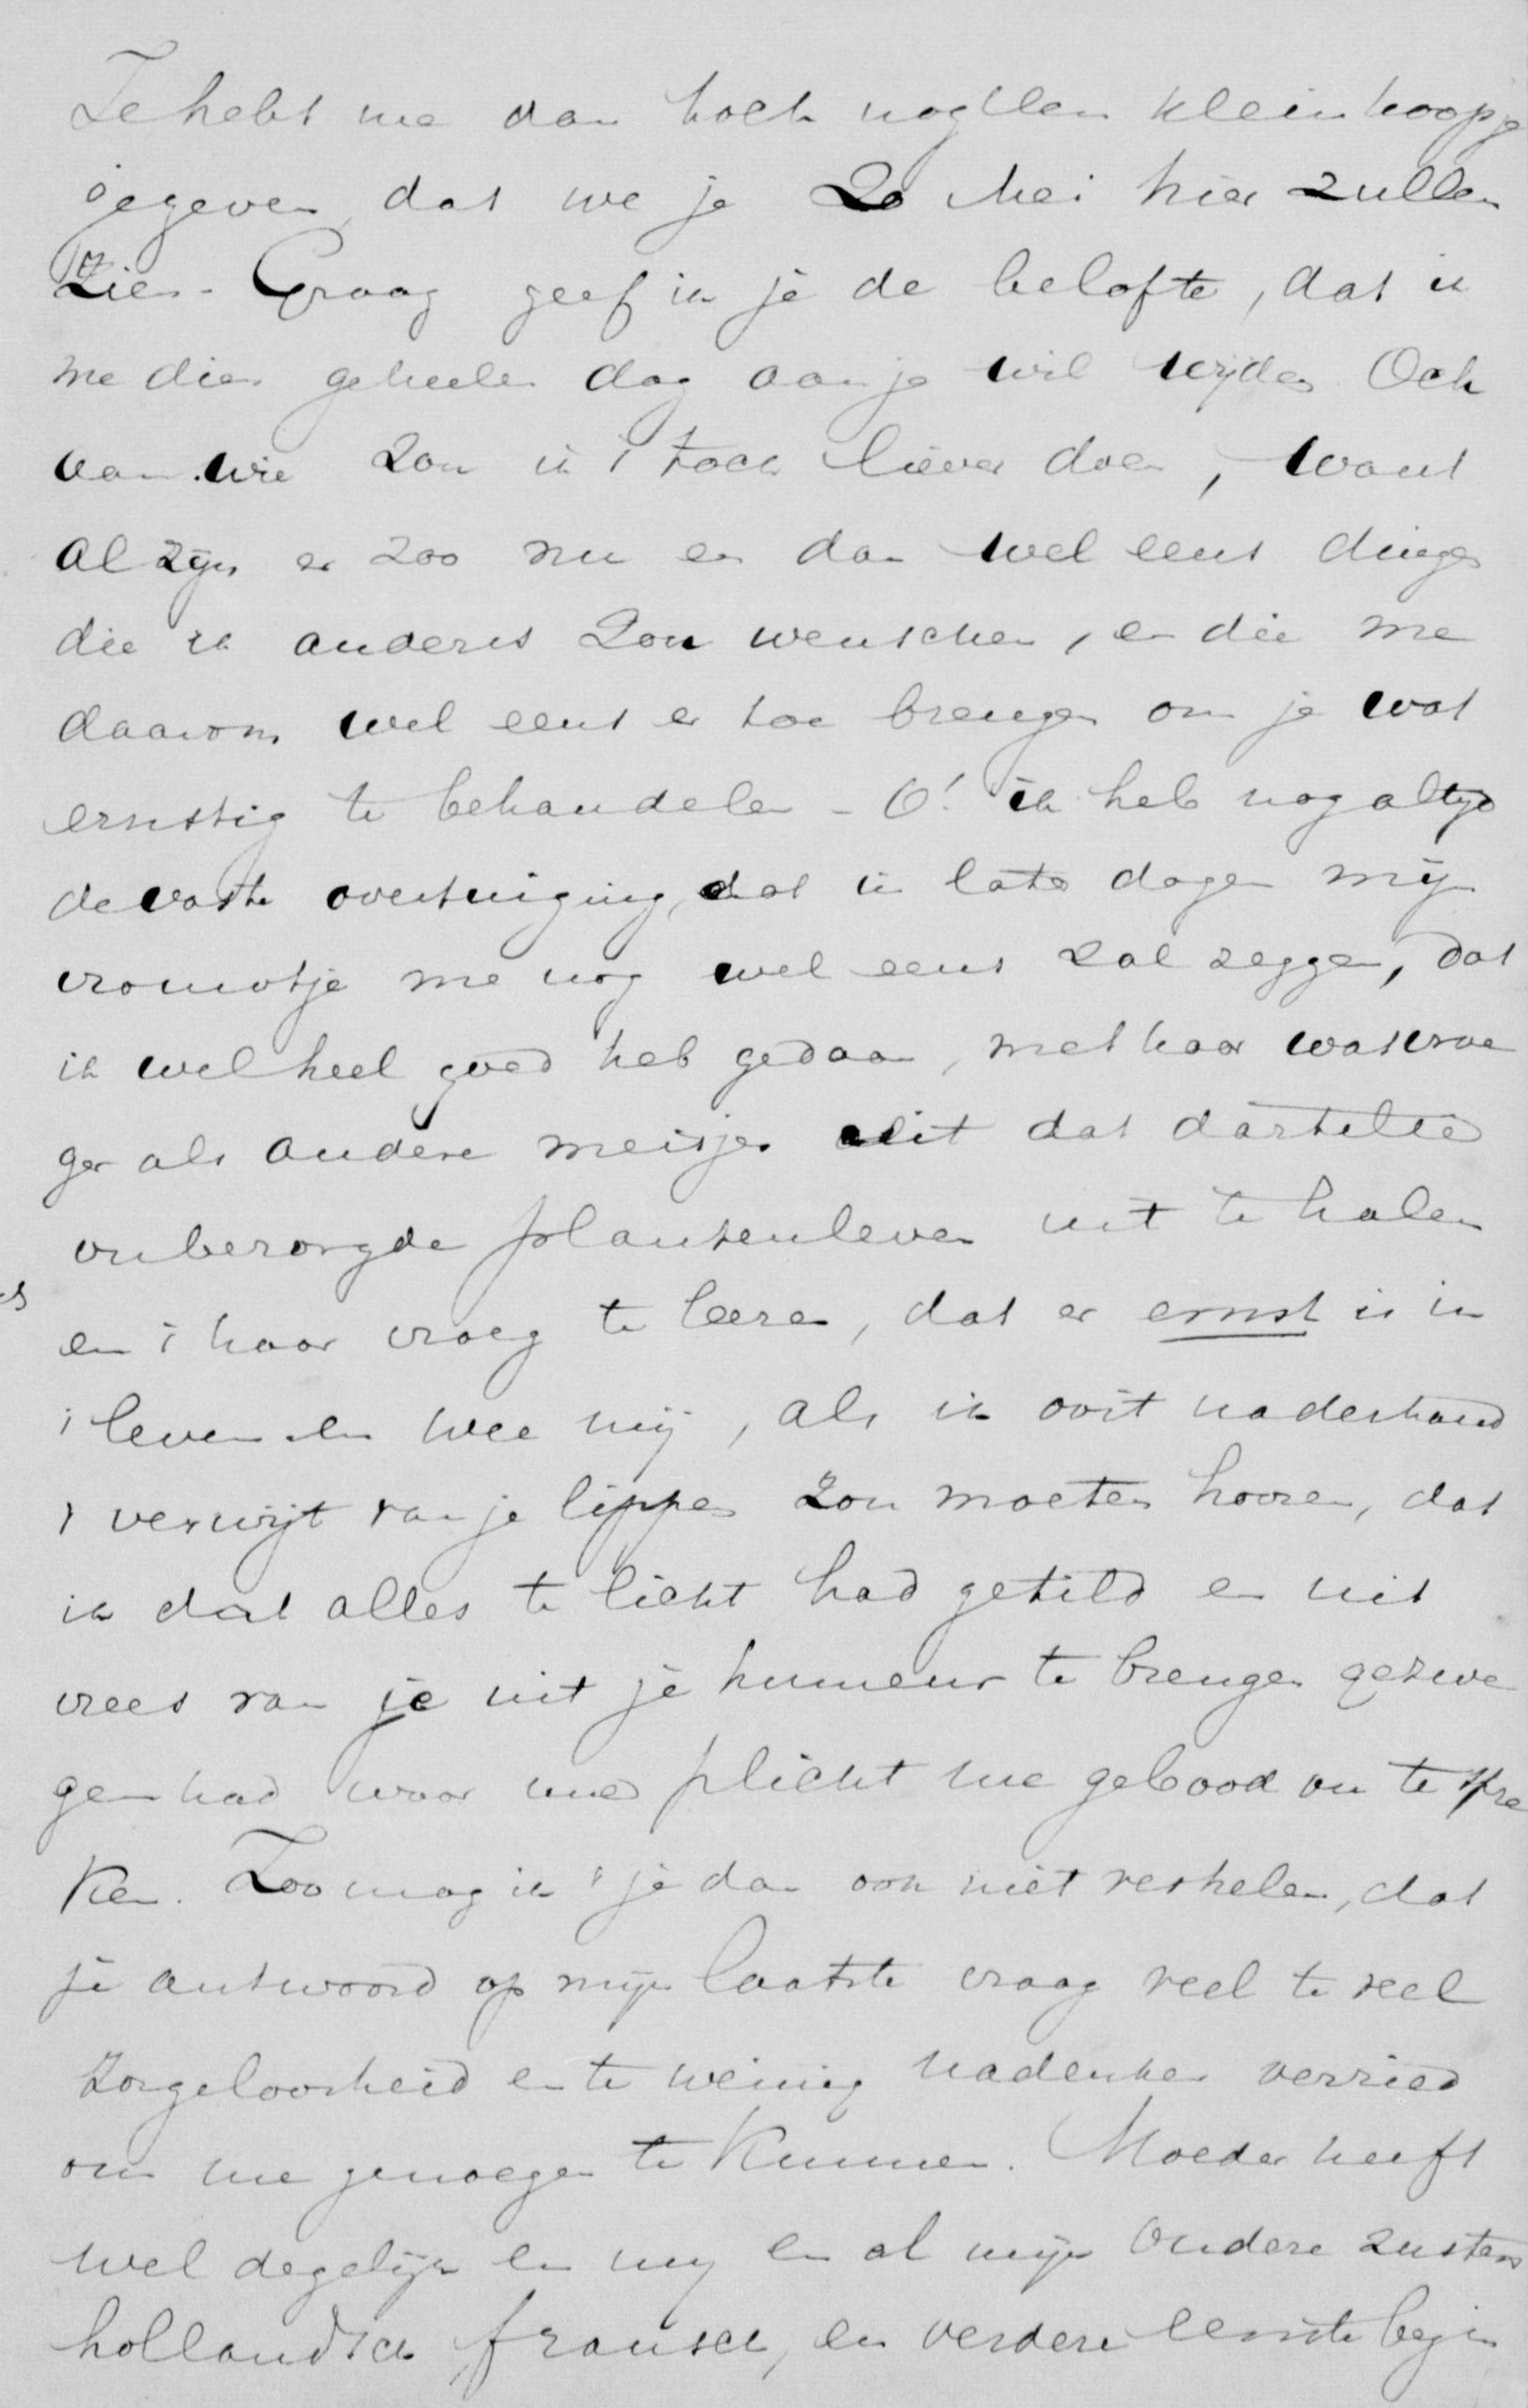 Je hebt me dan toch nog een klein hoopje
gegeven, dat we je 20 Mei hier zullen
zien. Graag geef ik je de belofte, dat ik
me dien geheelen dag aan je wil wijden. Och
aan wie zou ik 't toch liever doen, want
al zijn er zoo nu en dan wel eens dingen
die ik anders zou wenschen, en die me
daarom wel eens er toe brengen om je wat
ernstig te behandelen - O! ik heb nog altijd
de vaste overtuiging, dat in later dagen mijn
vrouwtje me nog wel eens zal zeggen, dat
ik wel heel goed heb gedaan, met haar wat vroe
ger als andere meisjes uit dat dartele
onbezorgde plantenleven uit te halen
en 't haar vroeg te leeren, dat er ernst is in
't leven en wee mij, als ik ooit naderhand
't verwijt van je lippen zou moeten hooren, dat
ik dat alles te licht had getild en uit
vrees van je uit je humeur te brengen gezwe
gen had waar me plicht me gebood om te spre
ken. Zoo mag ik 't je dan ook niet verhelen, dat
je antwoord op mijn laatste vraag veel te veel
zorgeloosheid en te weinig nadenken verried
om me genoegen te kunnen. Moeder heeft
wel degelijk en mij en al mijn oudere zusters
hollandsch, fransch, en verdere eerste begin